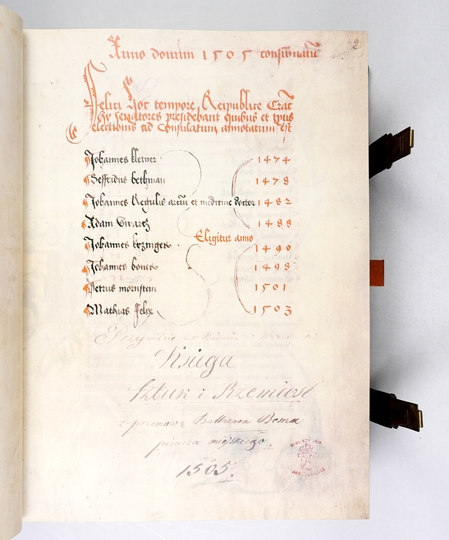 2
Anno domini 1505 consumatum
Felici hoc tempore Reipublice Crac
hy senatores presidebant quibus et ipsis
electionis ad Consulatum annotatum est
Johannes 1474
Seffridus bethman 1478
Johannes Regulis arcium et medicine Doctor 1482
Adam 1488
Eligitur anno
Johannes 1490
Johannes boner 1498
Petrus mornstein 1501
Mathias felix 1503
Księga
Sztuk i Rzemiosł
z przemową Baltazara Bema
pisarza miejskiego.
1505.